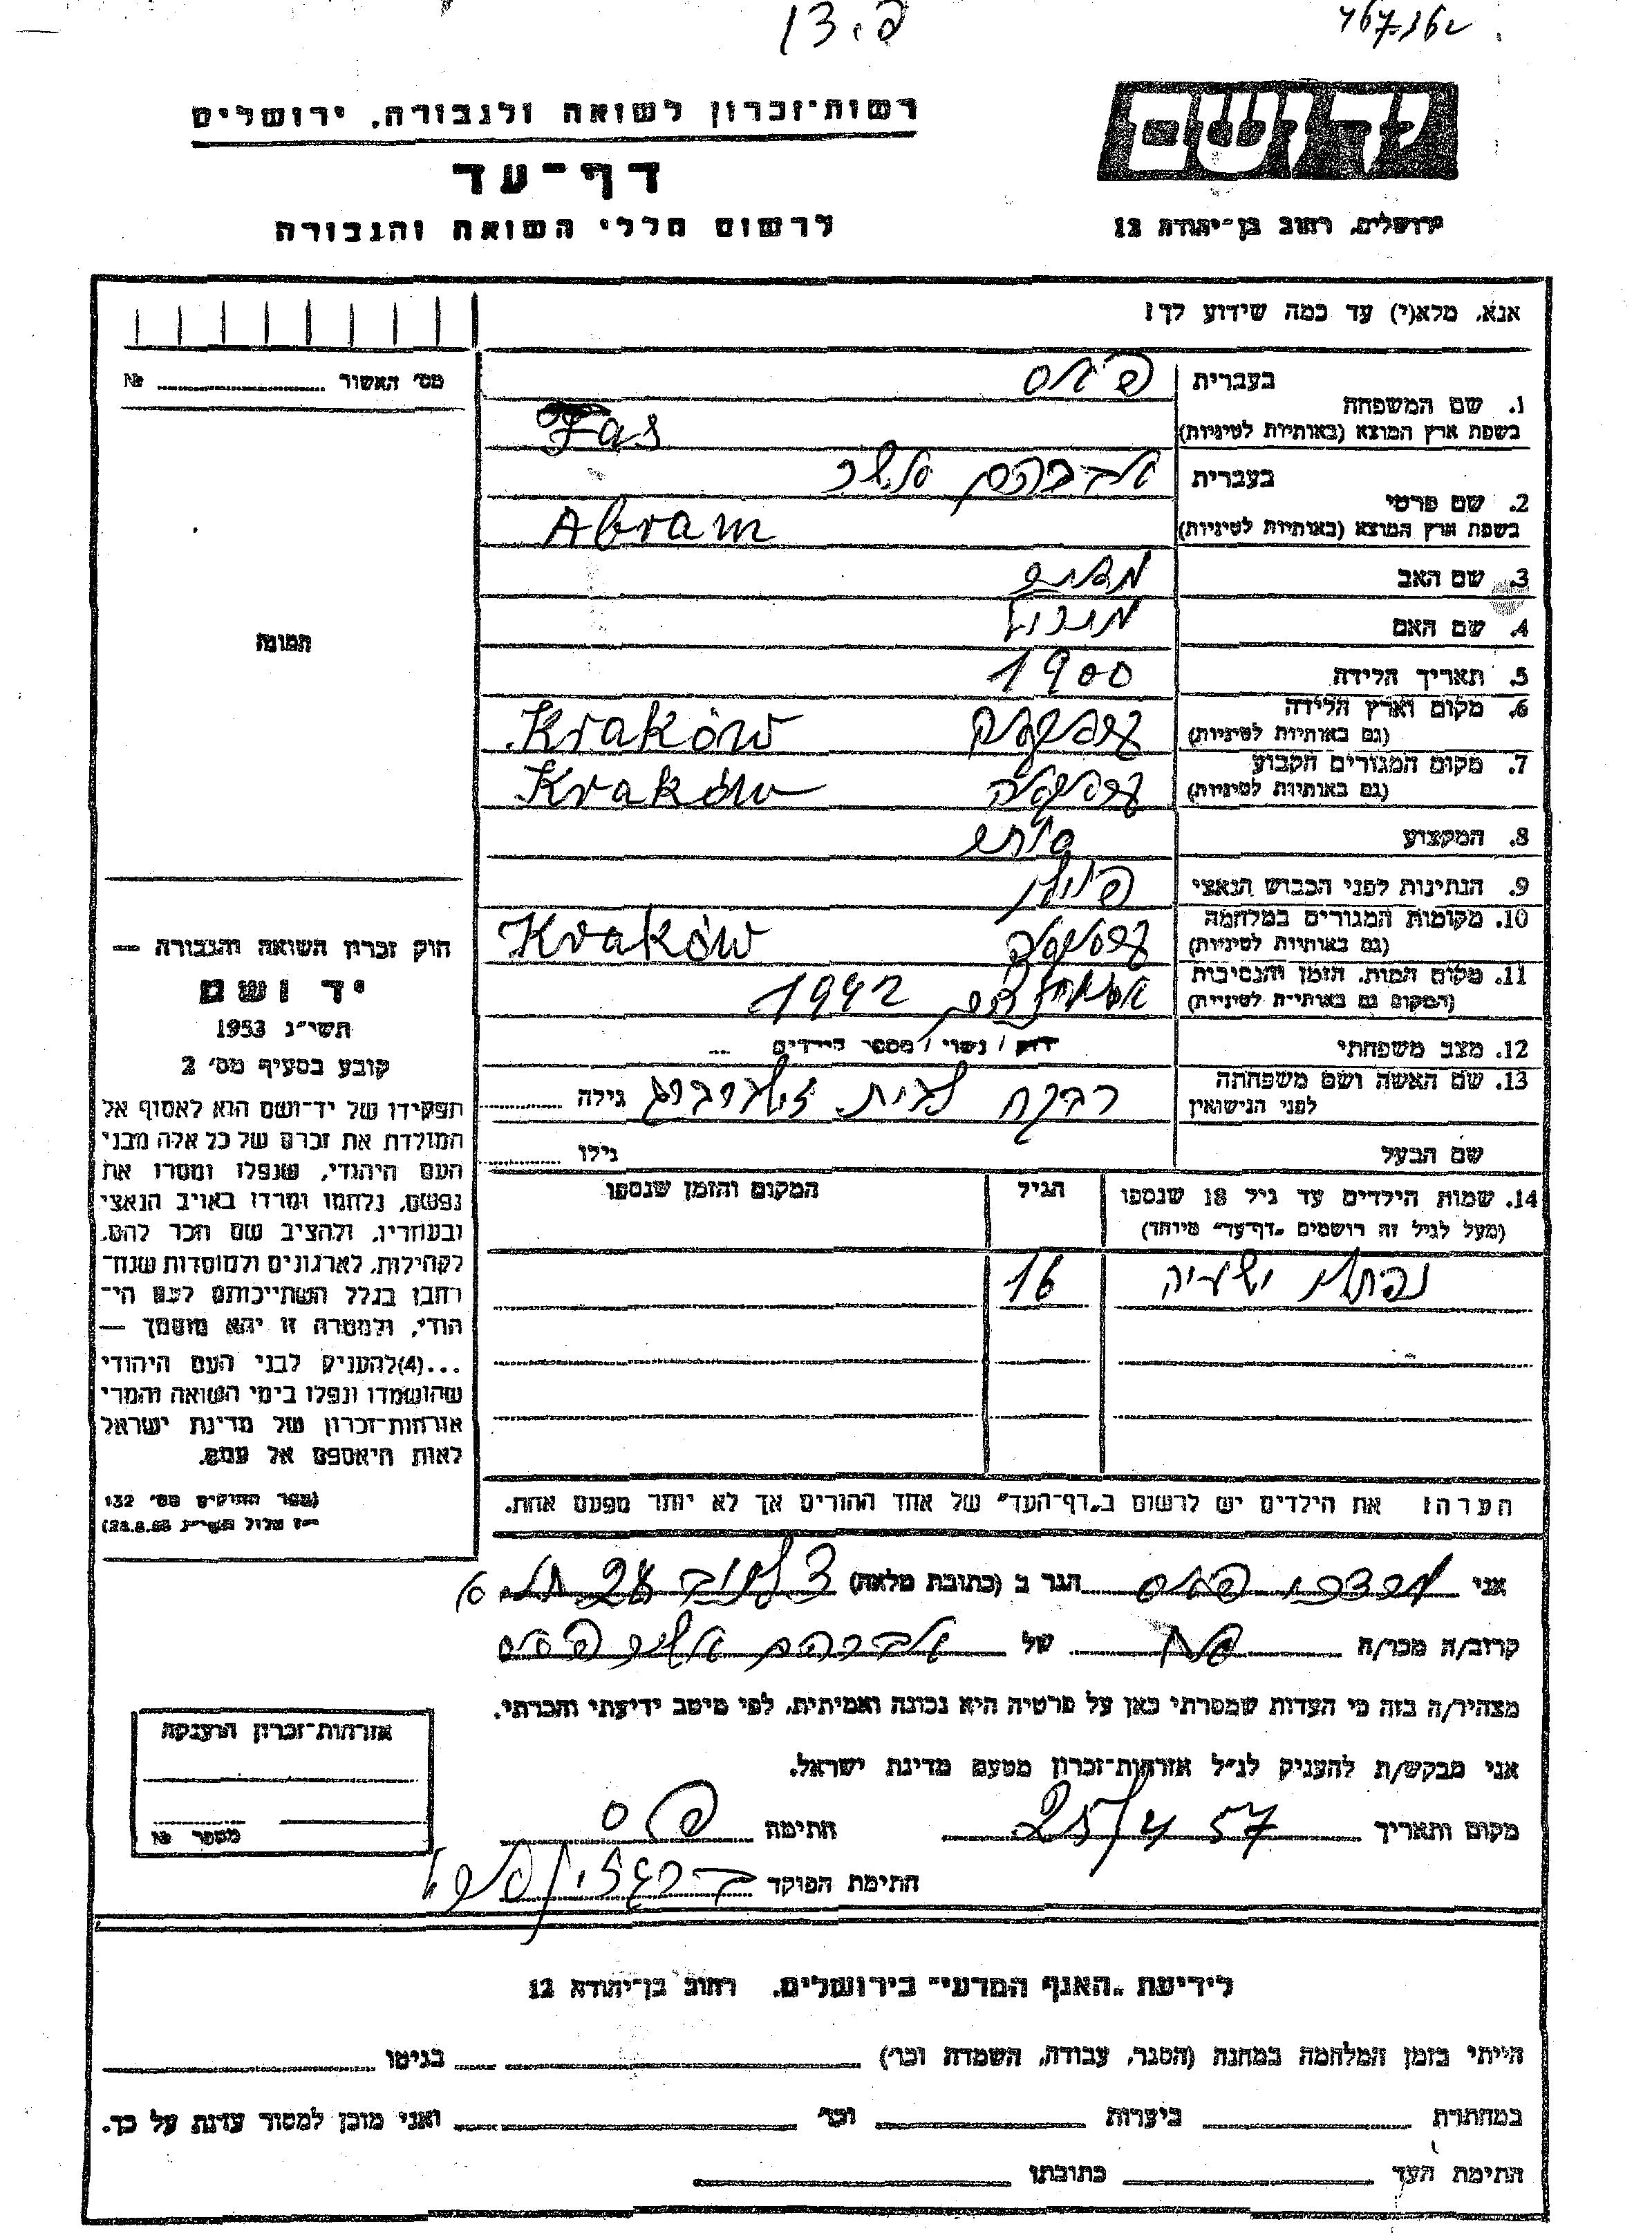 רשות־זכרון לשואה ולגבורה, ירושלים
דף־עד
לרשום חללי השואה והגבורה
ירושלים, רחוב בן־יהודה 12
אנא, מלא(י) עד כמה שידוע לך!
מס׳ האשור № 
1. שם המשפחה
בעברית פאס
בשפת ארץ המוצא (באותיות לטיניות) Fas
2. שם פרטי
בעברית אברהם אשר
בשפת ארץ המוצא (באותיות לטיניות) Abram
3. שם האב
4. שם האם
5. תאריך הלידה 1900
6. מקום וארץ הלידה (גם באותיות לטיניות) Kraków
7. מקום המגורים הקבוע (גם באותיות לטיניות) Kraków
8. המקצוע
9. הנתינות לפני הכבוש הנאצי פולין
10. מקומות המגורים במלחמה (גם באותיות לטיניות) Kraków
11. מקום המות, הזמן והנסיבות (המקום גם באותיות לטיניות) 1942
12. מצב משפחתי רווק / נשוי / מספר הילדים
13. שם האשה ושם משפחתה לפני הנישואין רבקה לבית גילה
שם הבעל גילו
14. שמות הילדים עד גיל 18 שנספו
(מעל לגיל זה רושמים „דף־עד” מיוחד)
הגיל
המקום והזמן שנספו
נפתלי ישעיה 16
הערה! את הילדים יש לרשום ב„דף־העד” של אחד ההורים אך לא יותר מפעם אחת.
התמונה
חוק זכרון השואה והגבורה —
יד ושם
תשי״ג 1953
קובע בסעיף מס׳ 2
תפקידו של יד־ושם הוא לאסוף אל
המולדת את זכרם של כל אלה מבני
העם היהודי, שנפלו ומסרו את
נפשם, נלחמו ומרדו באויב הנאצי
ובעוזריו, ולהציב שם וזכר להם,
לקהילות, לארגונים ולמוסדות שנח־
רבו בגלל השתייכותם לעם הי־
הודי, ולמטרה זו יהא מוסמך —
...(4) להעניק לבני העם היהודי
שהושמדו ונפלו בימי השואה והמרי
אזרחות־זכרון של מדינת ישראל
לאות היאספם אל עמם.
(ספר החוקים מס׳ 132
אני מרדכי פאס הגר ב (כתובת מלאה)
קרוב/ה מכר/ה אח של אברהם אשר פאס
מצהיר/ה בזה כי העדות שמסרתי כאן על פרטיה היא נכונה ואמיתית, לפי מיטב ידיעתי והכרתי.
אני מבקש/ת להעניק לנ״ל אזרחות־זכרון מטעם מדינת ישראל.
מקום ותאריך 25/4 57 חתימה פאס
חתימת הפוקד
אזרחות־זכרון הוענקה
מספר №
לידיעת „האגף המדעי” בירושלים, רחוב בן־יהודה 12
הייתי בזמן המלחמה במחנה (הסגר, עבודה, השמדה וכו׳) בגיטו
במחתרת ביערות וכו׳ ואני מוכן למסור עדות על כך.
חתימת העד כתובתו